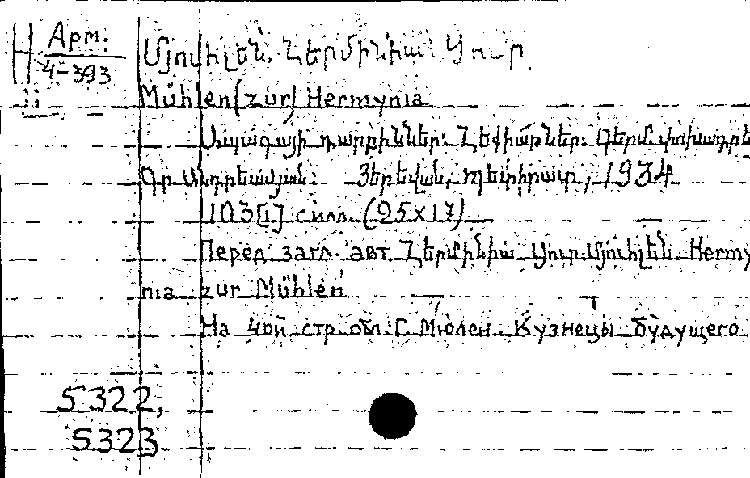 Арм.
4-393
Մյուհլեն, Հերմինիա Ցուր
Mühlen (zur) Hermynia
Ապագայի դարբինները. Հեքիաթներ. Գերմ. փոխադրեց
Գր. Երևան, Պետհրատ, 1934
103[1] с илл. (25x17)
Перед загл. авт Հերմինիա Ցուր Մյուհլեն. Hermy-
nia zur Mühlen
На 4ой стр. обл. Г. Мюлен. Кузнецы будущего
5322,
5323